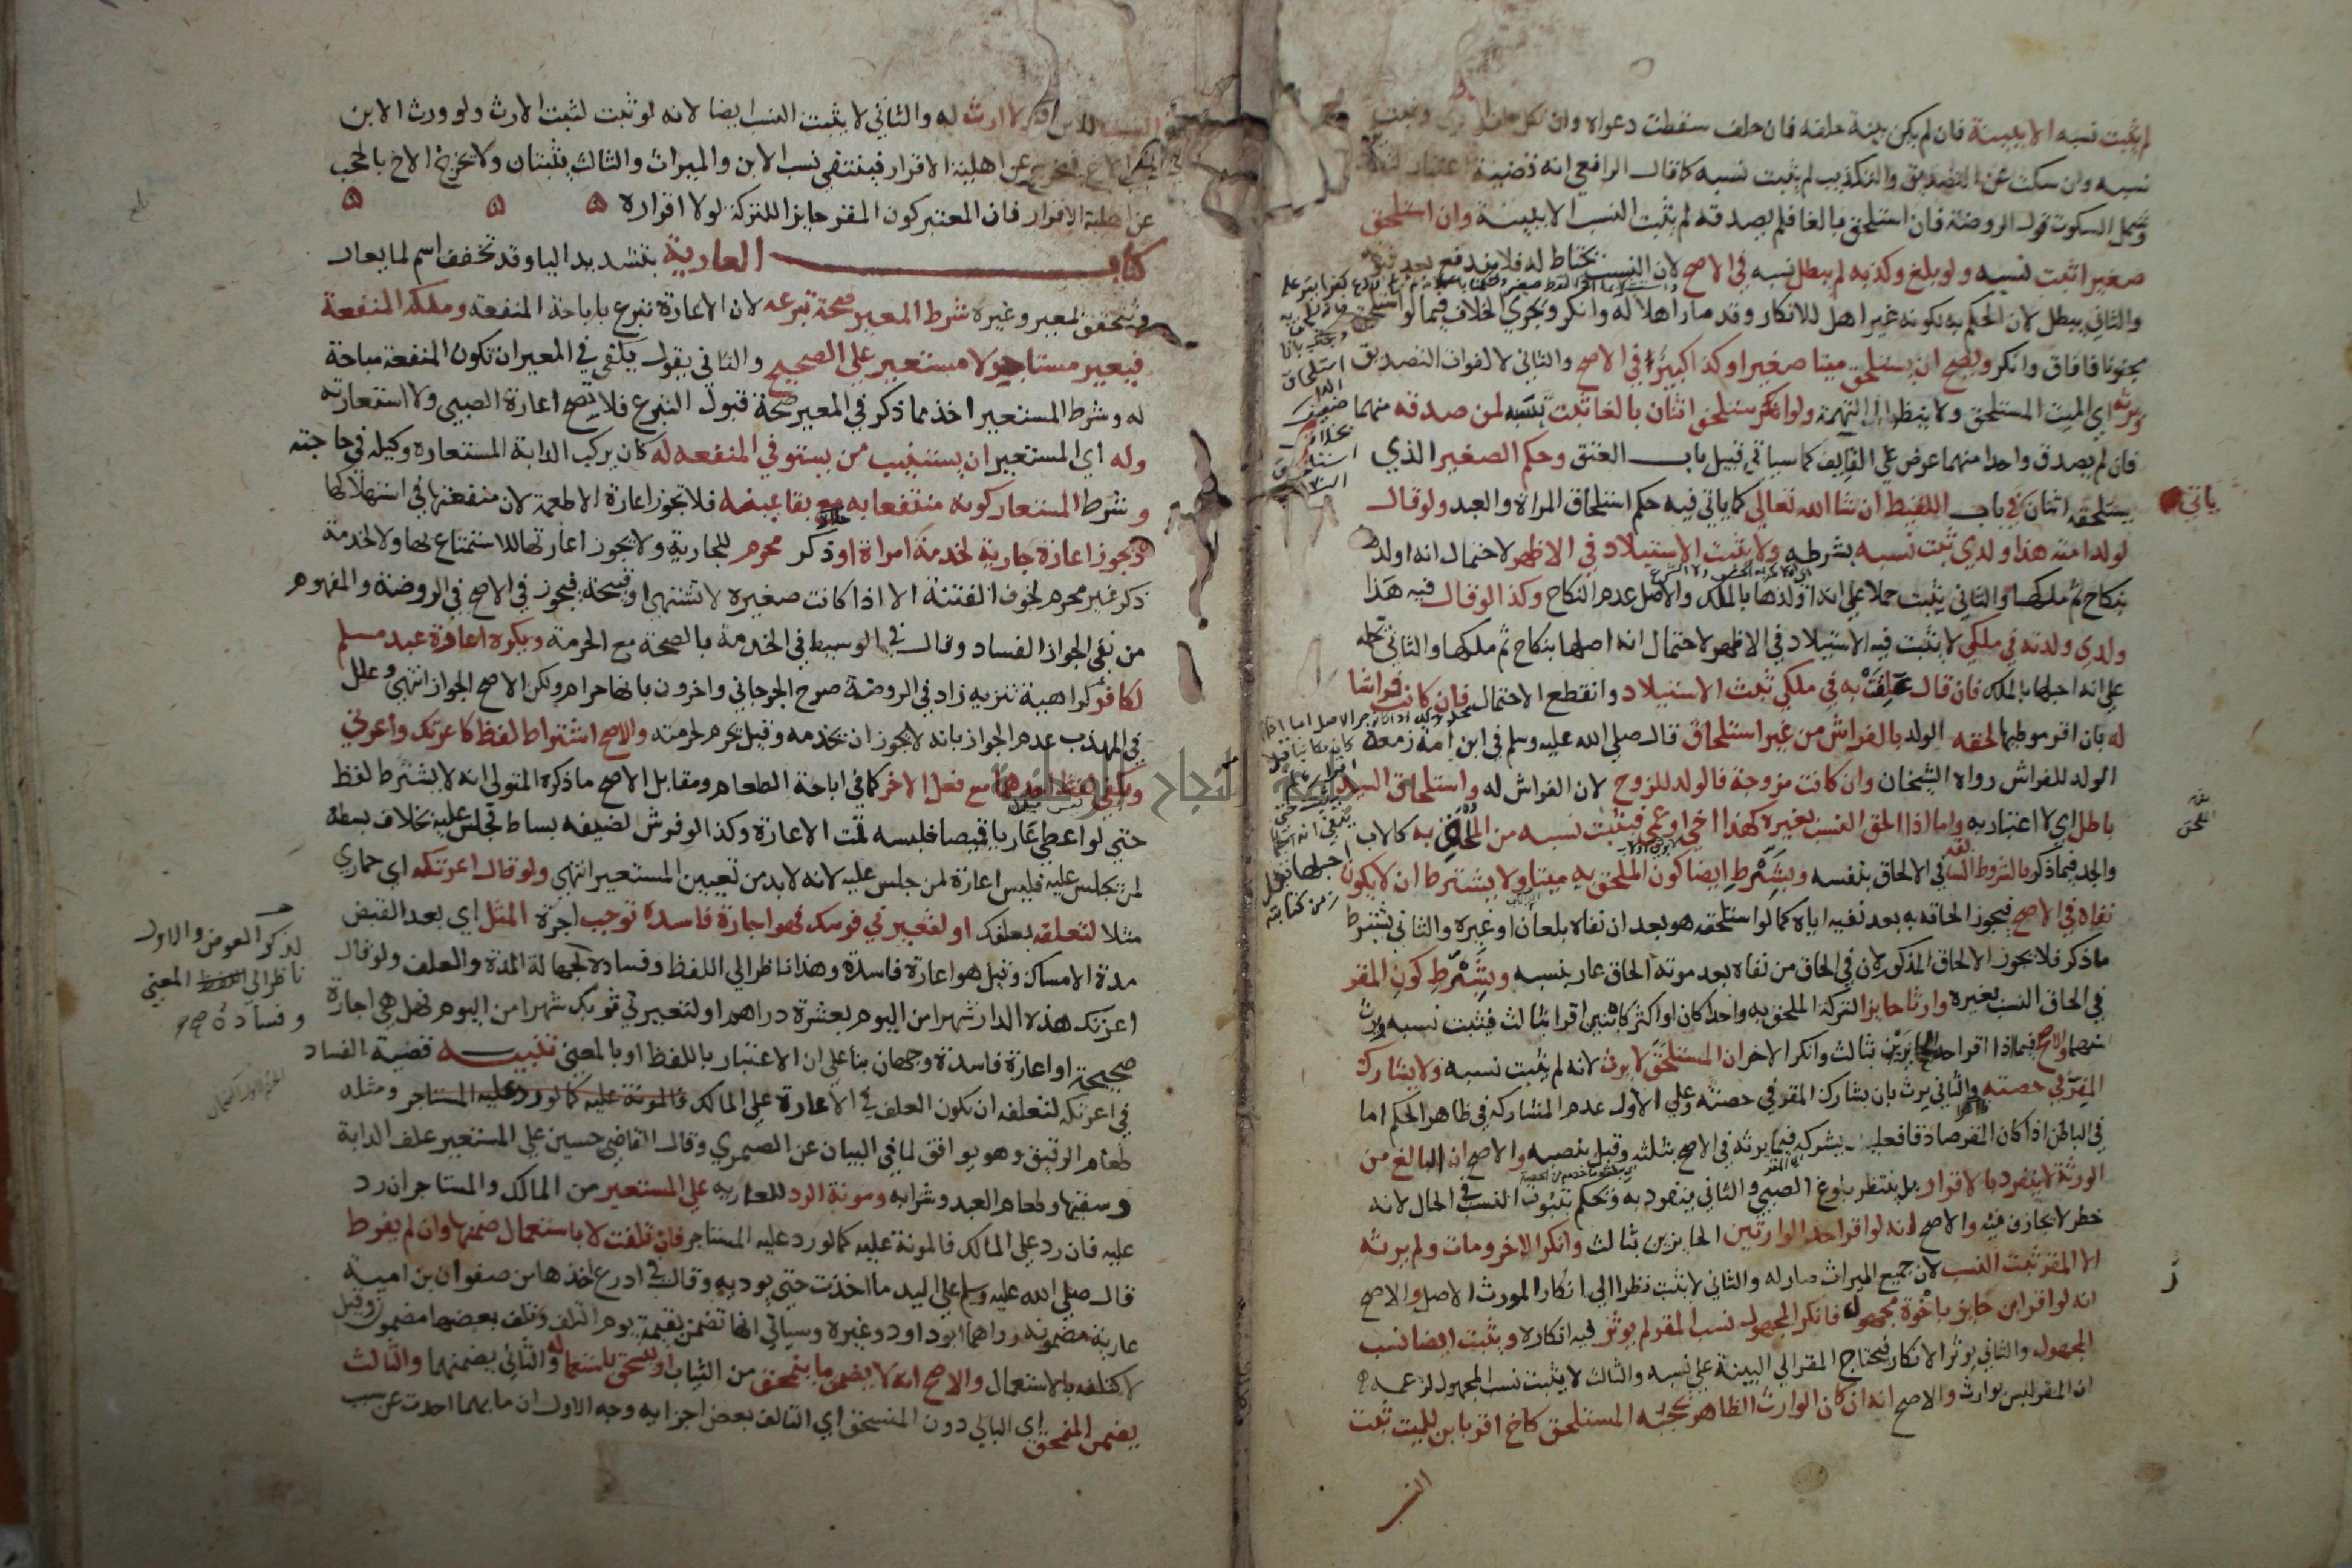 لم يثبت نسبه الا ببينة فان لم يكن بينة حلفه فان حلف سقطت دعواه وان نكل حلف المدعي وثبت
نسبه وان سكت عن التصديق والتكذيب لم يثبت نسبه كما قال الرافعي انه قضية اعتبار
وشمل السكوت قول الروضة فان استلحق بالغا فلم يصدقه لم يثبت النسب الا ببينة وان استلحق
صغيرا ثبت نسبه ولو بلغ وكذبه لم يبطل نسبه في الاصح لان النسب يحتاط له فلا يندفع بعد ثبوته
والثاني يبطل لان الحكم به لكونه غير اهل للانكار وقد صار اهلا له وانكر ويجري الخلاف فيما لو استلحق
مجنونا فافاق وانكر ويصح ان يستلحق ميتا صغيرا وكذا كبير في الاصح والثاني لا لفوات التصديق
ويرثه اي الميت المستلحق ولا ينظر الى التهمة ولو استلحق اثنان بالغا ثبت نسبه لمن صدقه منهما
فان لم يصدق واحدا منهما عرض على القايف كما سياتي قبيل باب العتق وحكم الصغير الذي
يستلحقه اثنان في باب اللقيط ان شا الله تعالي كما ياتي فيه حكم استلحاق المراة والعبد ولو قال
ياتي
لولد امته هذا ولدي ثبت نسبه بشرطه ولا يثبت الاستيلاد في الاظهر لاحتمال انه اولدها
بنكاح ثم ملكها والثاني يثبت حملا على انه اولدها بالملك والاصل عدم النكاح وكذا لو قال فيه هذا
ولدي ولدته في ملكي لا يثبت فيه الاستيلاد في الاظهر لاحتمال انه احبلها بنكاح ثم ملكها والثاني يحمله
على انه احبلها بالملك فان قال علقت به في ملكي ثبت الاستيلاد وانقطع الاحتمال فان كانت فراشا
له بان اقر بوطيها لحقه الولد بالفراش من غير استلحاق قال صلى الله عليه وسلم في ابن امة زمعة
الولد للفراش رواه الشيخان وان كانت مزوجة فالولد للزوج لان الفراش له واستلحاق السيد
باطل اي لا اعتبار به واما اذا الحق النسب بغيره كهذا اخي او عمي فيثبت نسبه من الملحق به كالاب
والجد فيما ذكر بالشروط السابقة في الالحاق بنفسه ويشترط ايضا كون الملحق به ميتا ولا يشترط ان لا يكون
نفاه في الاصح فيجوز الحاقه به بعد نفيه اياه كما لو استلحقه هو بعد ان نفاه بلعان او غيره والثاني يشترط
ما ذكر فلا يجوز الالحاق المذكور لان في الحاق من نفاه بعد موته الحاق عار بنسبه ويشترط كون المقر
في الحاق النسب بغيره وارثا حايزا لتركة الملحق به واحدا كان او اكثر كابنين اقرا بثالث فيثبت نسبه ويرث
منهما والاصح فيما اذا اقر احد الحايزين بثالث وانكر الاخر ان المستلحق لا يرث لانه لم يثبت نسبه ولا يشارك
المقر في حصته والثاني يرث بان يشارك المقر في حصته وعلي الاول عدم المشاركة في ظاهر الحكم اما
في الباطن اذا كان المقر صادقا فعليه يشركه فيما يرثه في الاصح بثلثه وقيل بنصفه والاصح ان البالغ من
الورثة لا ينفرد بالاقرار بل ينتظر بلوغ الصبي والثاني ينفرد به ويحكم بثبوت النسب في الحال لانه
خطر لا يجازف فيه والاصح انه لو اقر احد الوارثين الحايزين بثالث وانكر الاخر ومات ولم يرثه
الا المقر ثبت النسب لان جميع الميراث صار له والثاني لا يثبت نظرا الي انكار المورث الاصل والاصح
انه لو اقر ابن حايز باخوة مجهول فانكر المجهول نسب المقر لم يؤثر فيه انكاره ويثبت ايضا نسب
المجهول والثاني يؤثر الانكار فيحتاج المقر الي البينة على نسبه والثالث لا يثبت نسب المجهول لزعمه
ان المقر ليس بوارث والاصح انه ان كان الوارث الظاهر يحجبه المستلحق كاخ اقر بابن للميت ثبت
النسب
النسب للابن ولا ارث له والثاني لا يثبت النسب ايضا لانه لو ثبت لثبت الارث ولو ورث الابن
لحجب الاخ فيخرج عن اهلية الاقرار فينتفي نسب الابن والميراث والثالث يثبتان ولا يخرج الاخ بالحجب
عن اهلية الاقرار فان المعتبر كون المقر حايزا للتركة لولا اقراره
كتاب العارية بتشديد اليا وقد تخفف اسم لما يعار
فيتحقق بمعير وغيره شرط المعير صحة تبرعه لان الاعارة تبرع باباحة المنفعة وملكه المنفعة
فيعير مستاجر لا مستعير على الصحيح والثاني يقول يكفي في المعير ان تكون المنفعة مباحة
له وشرط المستعير اخذ مما ذكر في المعير صحة قبول التبرع فلا تصح اعارة الصبي ولا استعارته
وله اي المستعير ان يستنيب من يستوفي المنفعة له كان يركب الدابة المستعارة وكيله في حاجته
وشرط المستعار كونه منتفعا به مع بقا عينه فلا تجوز اعارة الاطعمة لان منفعتها في استهلاكها
وتجوز اعارة جارية لخدمة امراة او ذكر محرم للجارية ولا يجوز اعارتها للاستمتاع بها ولا لخدمة
ذكر غير محرم لخوف الفتنة الا اذا كانت صغيرة لا تشتهى او قبيحة فيجوز في الاصح في الروضة والمفهوم
من نفي الجواز الفساد وقال في الوسيط في الخدمة بالصحة مع الحرمة ويكره اعارة عبد مسلم
لكافر كراهية تنزيه زاد في الروضة صرح الجرجاني واخرون بانها حرام ولكن الاصح الجواز انتهي وعلل
في المهذب عدم الجواز بانه لا يجوز ان يخدمه وقيل يحرم لحرمته والاصح اشتراط لفظ كاعرتك واعرني
ويكفي لفظ احدهما مع فعل الاخر كما في اباحة الطعام ومقابل الاصح ما ذكره المتولي انه لا يشترط لفظ
حتي لو اعطى عاريا قميصا فلبسه تمت الاعارة وكذا لو فرش لضيفه بساط فجلس عليه بخلاف بسطه
لمن يجلس عليه فليس اعارة لمن جلس عليه لانه لا بد من تعيين المستعير انتهي ولو قال اعرتكه اي حماري
مثلا لتعلفه بعلفك او لتعيرني فرسك فهو اجارة فاسدة توجب اجرة المثل اي بعد القبض
مدة الامساك وقيل هو اعارة فاسدة وهذا ناظر الي اللفظ وفساده لجهالة المدة والعلف ولو قال
لذكر العوض والاول
ناظر الي المعني
وفساده صح
اعرتك هذه الدار شهرا من اليوم بعشرة دراهم او لتعيرني ثوبك شهرا من اليوم فهل هي اجارة
صحيحة او اعارة فاسدة وجهان بنا علي ان الاعتبار باللفظ او بالمعني تنبيه قضية الفساد
في اعرتكه لتعلفه ان يكون العلف في الاعارة علي المالك فالمونة عليه كما لو رد عليه المستاجر ومثله
طعام الرقيق وهو يوافق لما في البيان عن الصيمري وقال القاضي حسين علي المستعير علف الدابة
وسقيها وطعام العبد وشرابه ومونة الرد للعارية على المستعير من المالك والمستاجر ان رد
عليه فان رد علي المالك فالمونة عليه كما لو رد عليه المستاجر فان تلفت لا باستعمال ضمنها وان لم يفرط
قال صلى الله عليه وسلم علي اليد ما اخذت حتي توديه وقال في ادرع اخذها من صفوان بن امية
عارية مضمونة رواهما ابو داود وغيره وسياتي انها تضمن بقيمة يوم التلف وتلف بعضها مضمون وقيل
لا كتلفه بالاستعمال والاصح انه لا يضمن ما ينمحق من الثياب او ينسحق باستعمال والثاني يضمنهما والثالث
يضمن المنمحق اي البالي دون المنسحق اي التالف بعض اجزايه وجه الاول ان ما بهما احدث عن سبب